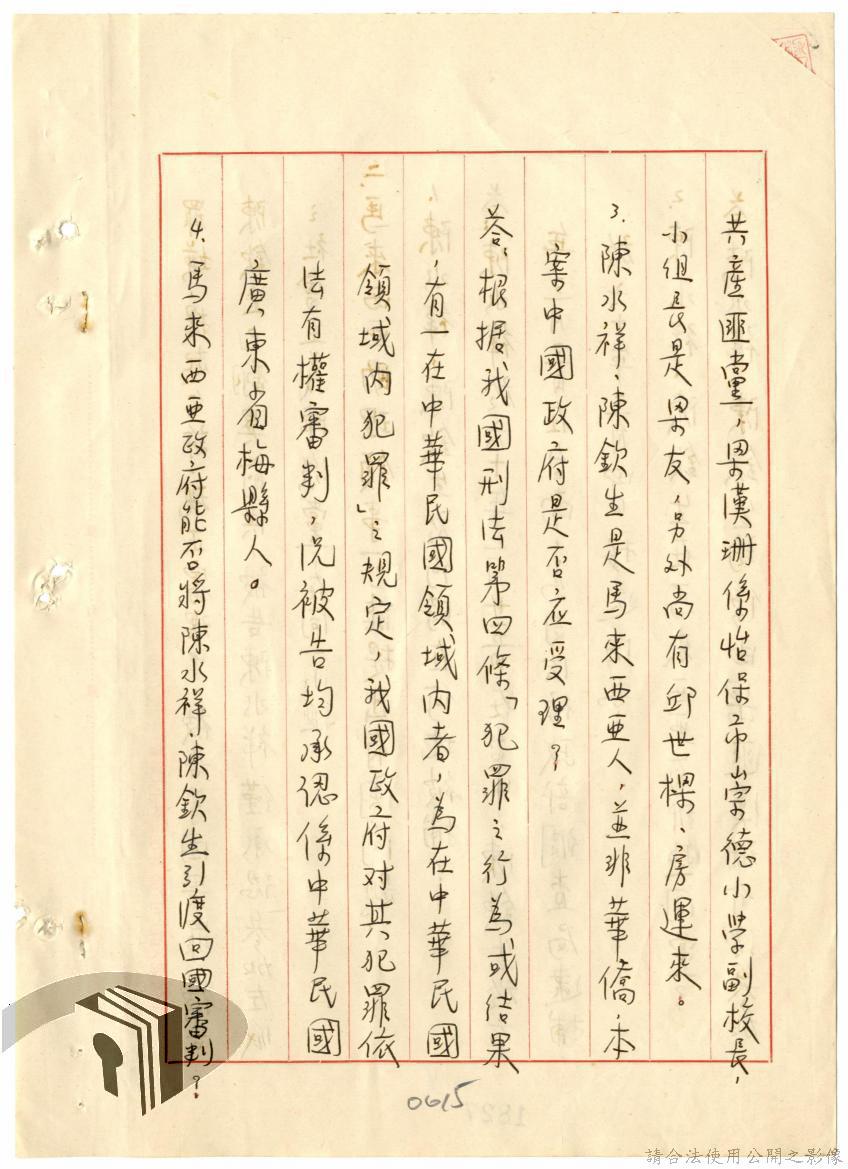 共產匪黨，梁漢珊係怡保市崇德小学副校長，
小組長是梁友，另外尚有邱世楳、房運来。
3.陳水祥、陳欽生是馬来西亜人，並非華僑，本
案中國政府是否应受理？
荅、根据我國刑法第四條「犯罪之行為或结果
，有一在中華民國領域内者，為在中華民國
領域内犯罪」之規定，我國政府对其犯罪依
法有權審判，况被告均承認係中華民國
廣東省梅縣人。
4.馬来西亜政府能否將陳水祥、陳欽生引渡回國審判？
0615
請合法使用公開之影像